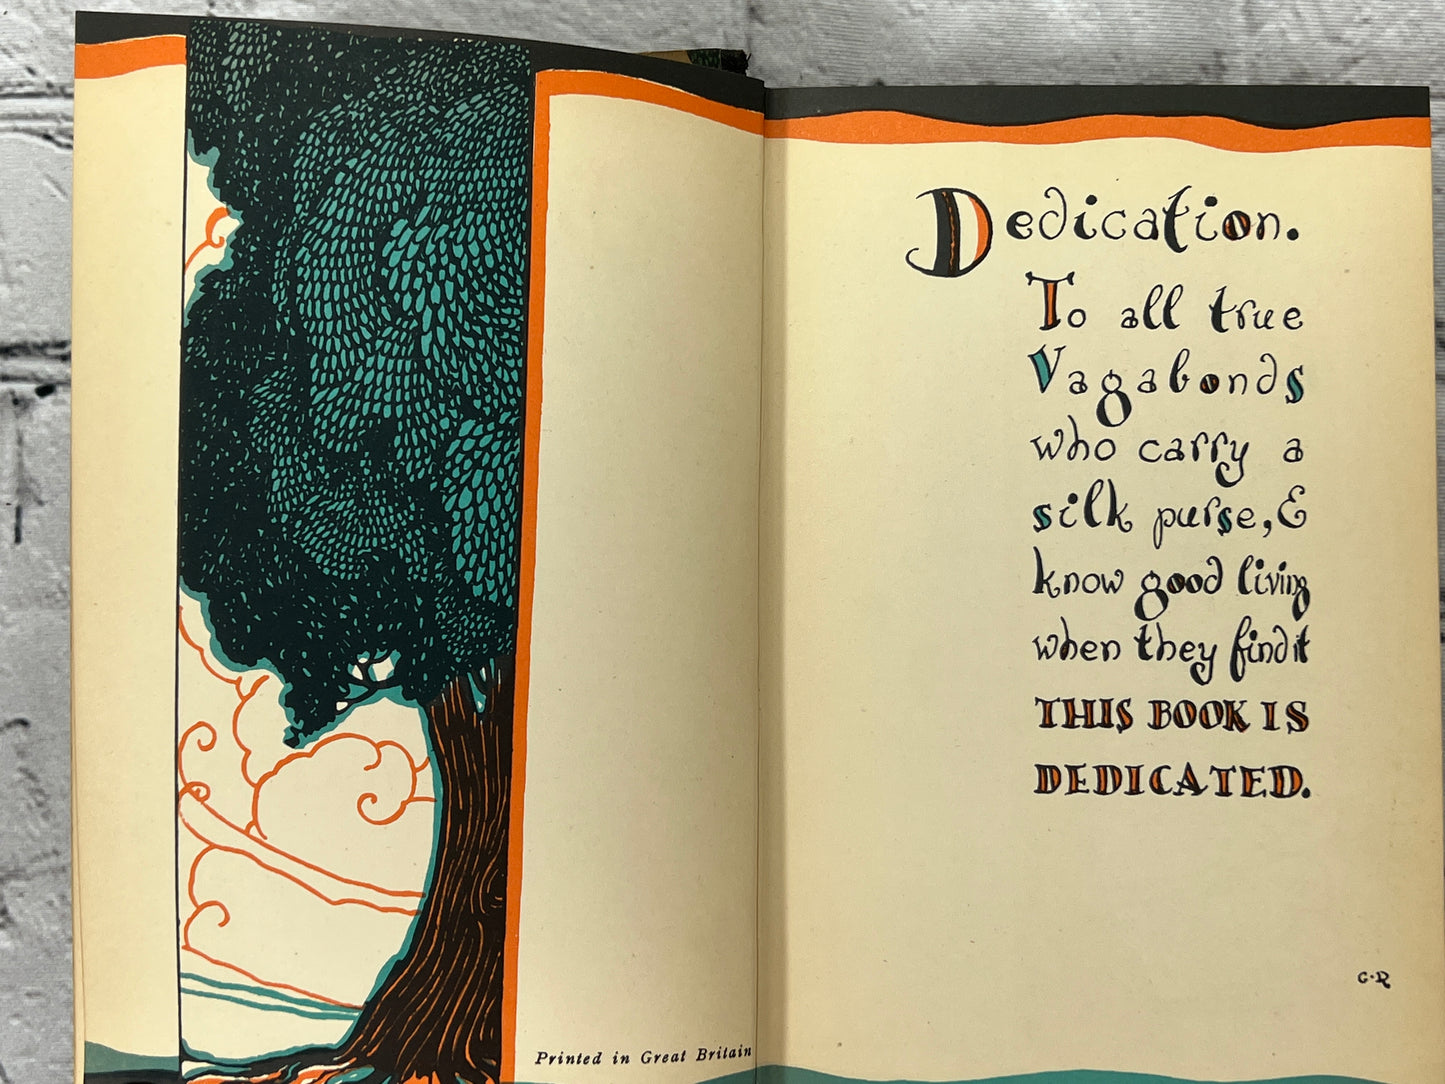 Printed in Great Britain
Dedication.
To all true
Vagabonds
who carry a
silk purse, &
know good living
when they find it
THIS BOOK IS
DEDICATED.
C·R